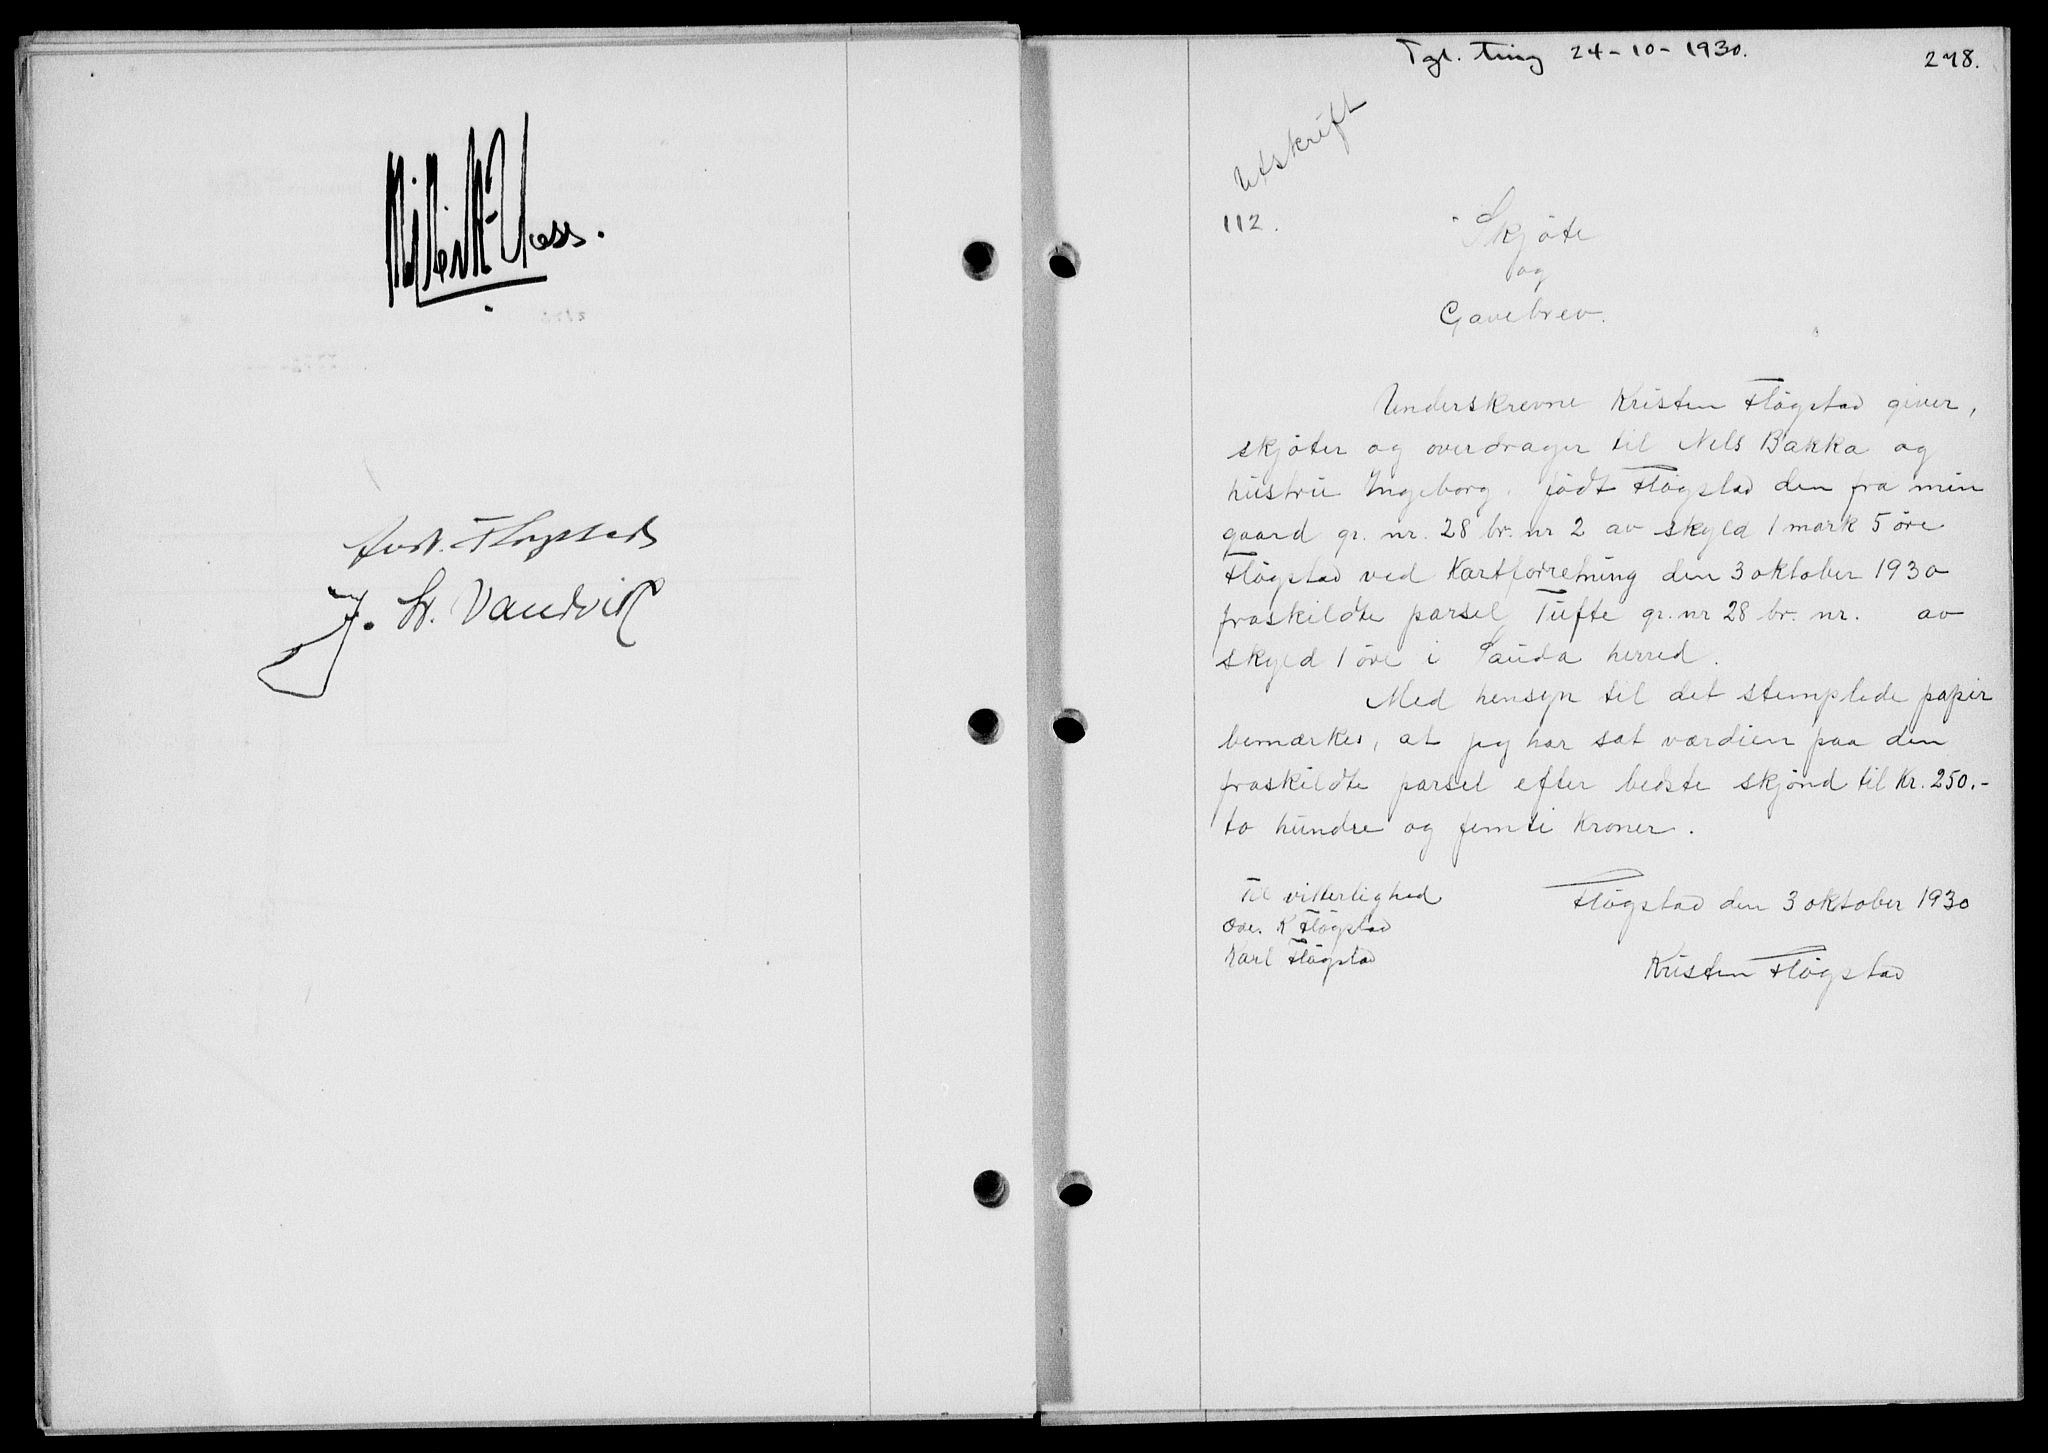 J. Sv. Vandvik
Tgl. ting 24-10-1930.
248.
Utskrift
112.
Skjøte
og
Gavebrev.
Underskrevne Kristen Fløgstad giver,
skjøter og overdrager til Nels Bakka og
hustru Ingeborg, født Fløgstad den fra min
gaard gr. nr. 28 br. nr 2 av skyld 1 mark 5 øre
Fløgstad ved Kartforretning den 3 oktober 1930
fraskildte parsel, Tufte gr. nr 28 br. nr. av
skyld 1 øre i Sauda herred.
Med hensyn til det stemplede papir
bemærkes, at jeg har sat værdien paa den
fraskildte parsel efter bedste skjønd til Kr. 250.-
to hundre og femti Kroner.
Til vitterlighed
Odv. K Fløgstad
Karl Fløgstad
Fløgstad den 3 oktober 1930
Kristen Fløgstad